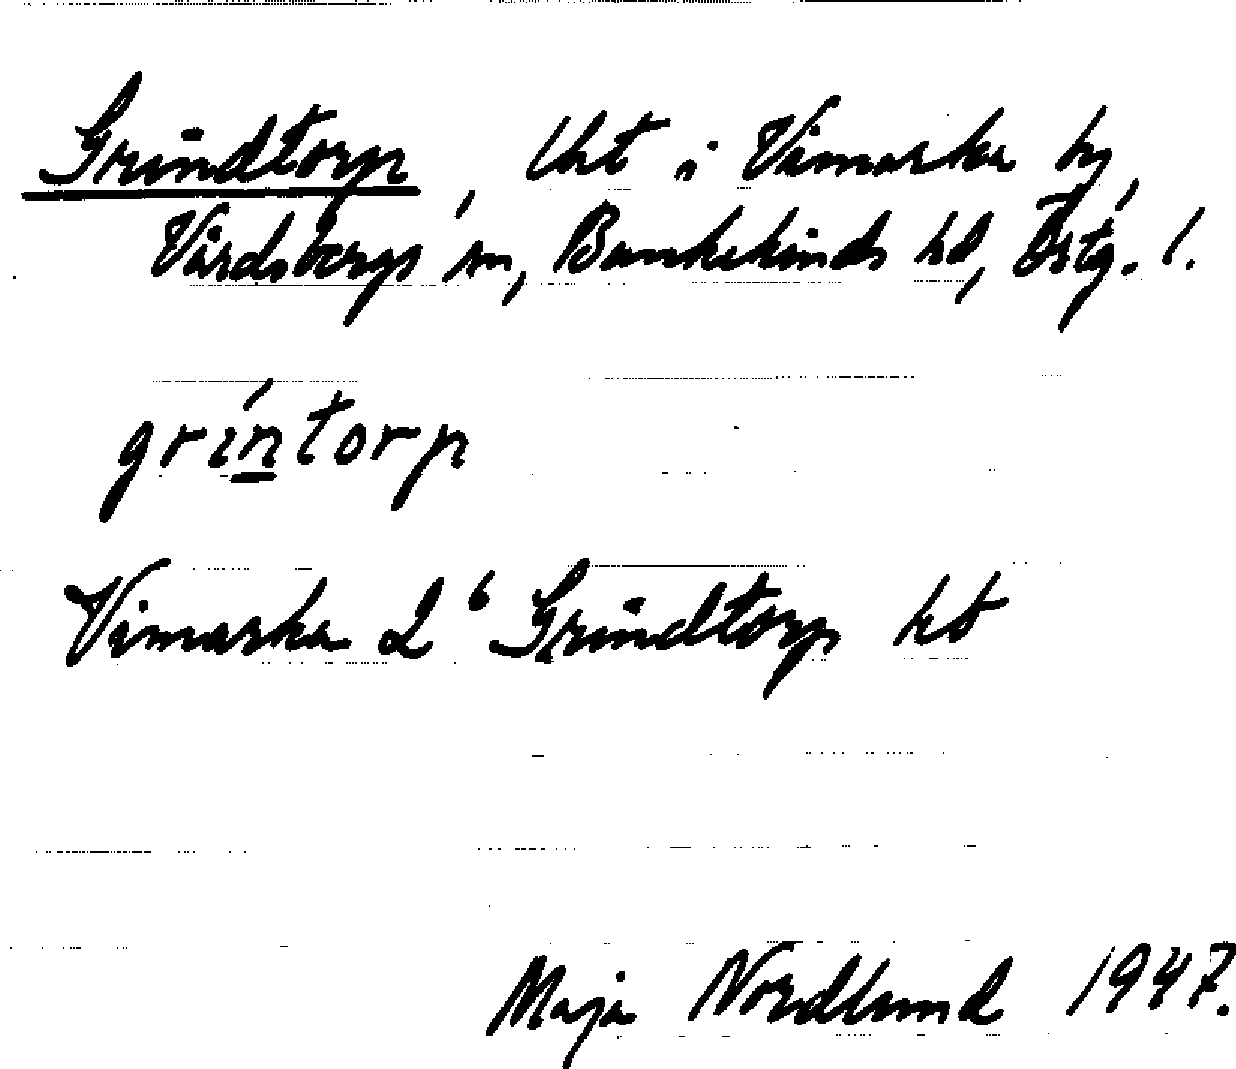 Grindtorp, lht i Vimarka by,
Vårdsbergs sn, Bankekinds hd, Östg. l.
gríntorp
Vimarka 2⁶ Grindtorp
Maja Nordlund 1947.